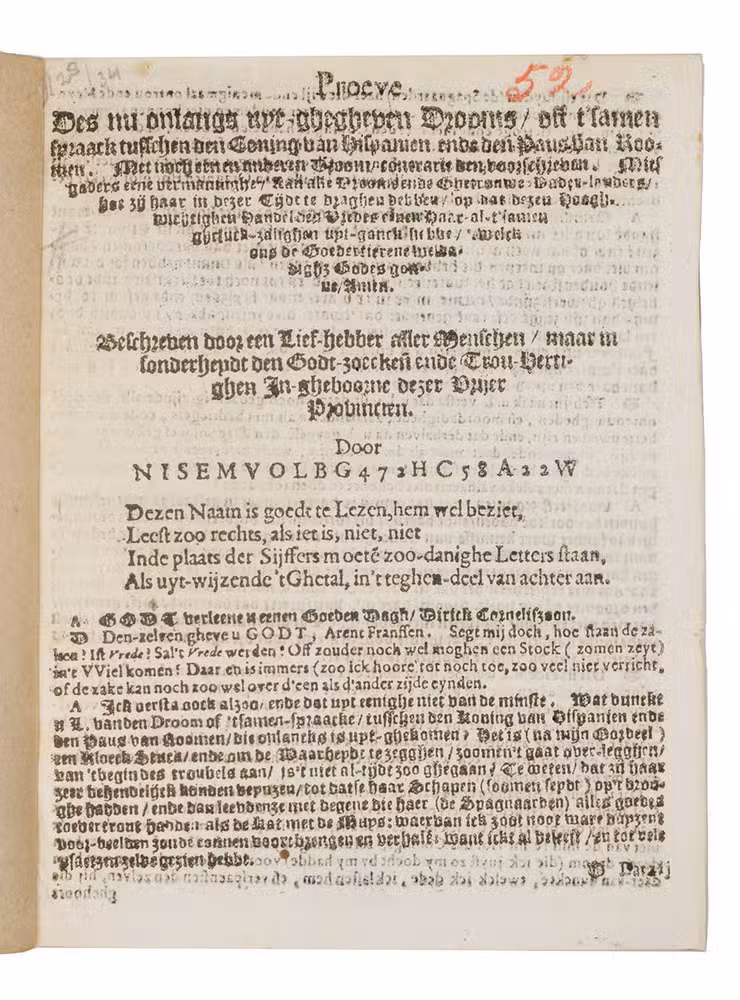 Proeve
52.
Des nu onlangs uyt-ghegheven Drooms / oft t'samen
spraack tusschen den Coning van Hispanien ende den Paus van Roo-
men. Met noch eenen anderen Droom / contrarie den voorschreven. Mits
gaders eene vermaninghe / aan alle Vroom ende Ghetrouwe Vader-landers /
hoe zy haar in dezer Tijdt te draghen hebben / op dat dezen Hoogh-
wichtighen Handel des Vredes eenen Haar-al-t'samen
gheluck-zalighen uyt-ganck hebbe / 'twelck
ons de Goedertierene
Godes gon-
ne / Amen.
Beschreven door een Lief-hebber aller Menschen / maar in
sonderheydt den Godt-zoeckeñ ende Trou-Herti-
ghen In-gheboorne dezer Vrijer
Provincien.
Door
NISEMVOLBG472HC58A22W
Dezen Naam is goedt te Lezen, hem wel beziet,
Leest zoo rechts, als iet is, niet, niet
Inde plaats der Sijffers moetē zoo-danighe Letters staan,
Als uyt-wijzende 'tGhetal, in't teghen-deel van achter aan.
A GODT verleene u eenen Goeden Dagh / Dirick Corneliszoon.
D Den-zelven gheve u GODT, Arent Franssen. Segt mij doch, hoe staan de za-
ken? Ist Vrede? Sal't Vrede werden? Off zouder noch wel moghen een Stock (zomen zeyt)
in't VViel komen? Daar en is immers (zoo ick hoore) tot noch toe, zoo veel niet verricht,
of de zake kan noch zoo wel over d'een als d'ander zijde eynden.
A Ick versta oock alzoo / ende dat uyt eenighe niet van de minste. Wat duncke
u L. vanden Droom of 'tsamen-spraacke / tusschen den Koning van Hispanien ende
den Paus van Roomen / die onlancks is uyt-ghekomen? Het is (na mijn Oordeel)
een Kloeck Stuck / ende om de Waarheydt te zegghen / zoomen't gaat over-legghen /
van 'tbegin des troubels aan / is't niet al-tijdt zoo ghegaan? Te weten / dat zy haar
zeer behendelijck konden veynzen / tot datse haar Schapen (soomen seydt) op't droo-
ghe hadden / ende dan leefdenze met degene die haer (de Spagnaarden) alles goedes
toevertrout hadden als de Kat met de Muys: waervan ick zoot noot ware duyzent
voor-beelden zoude connen voortbrengen en verhalē: want ickt al beleeft / en tot vele
plaetzen zelve gezien hebbe.
D Dat zij